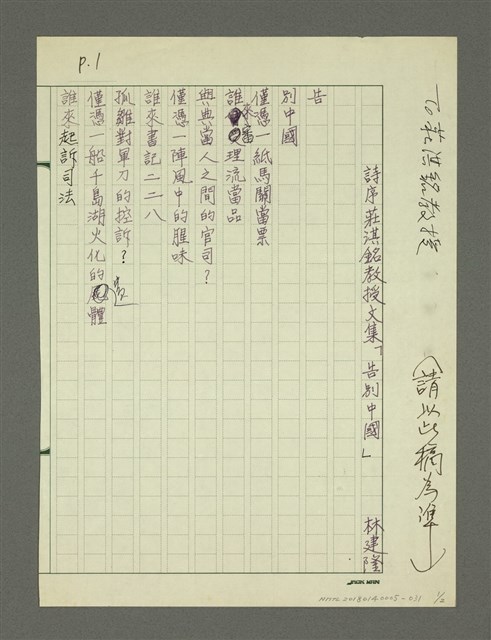 To 莊淇銘教授
（請以此稿為準）
P.1
詩序莊淇銘教授文集「告別中國」
林建隆
告
別中國
僅憑一紙馬關當票
誰來審理流當品
與典當人之間的官司？
僅憑一陣風中的腥味
誰來書記二二八
孤雛對軍刀的控訴？
僅憑一船千島湖火化的遺體
誰來起訴司法
NMTL20180140005-031
1/2